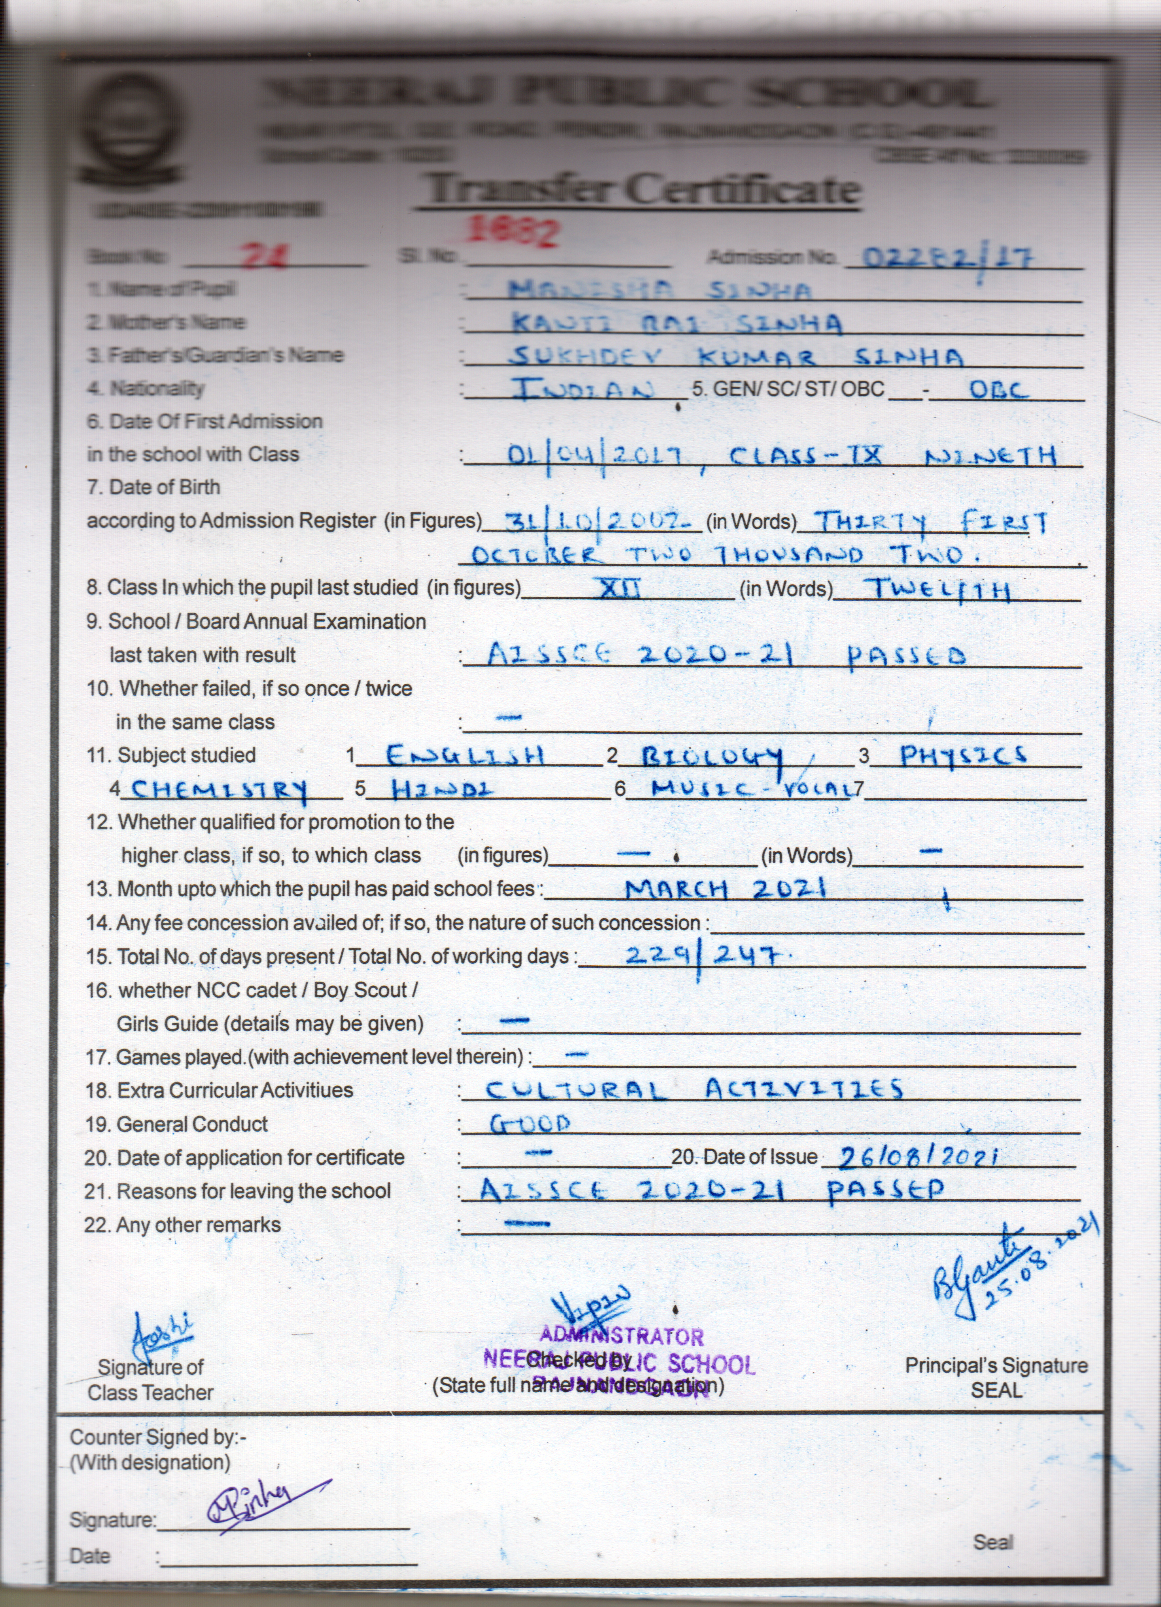 NEERAJ PUBLIC SCHOOL
Transfer Certificate
Book No 24 Sl. No. 1682 Admission No. 02282/17
1. Name of Pupil : MANISHA SINHA
2. Mother's Name : KANTI BAI SINHA
3. Father's/Guardian's Name : SUKHDEV KUMAR SINHA
4. Nationality : INDIAN 5. GEN/ SC/ ST/ OBC - OBC
6. Date Of First Admission
in the school with Class : 01/04/2017, CLASS-IX NINETH
7. Date of Birth
according to Admission Register (in Figures) 31/10/2002 (in Words) THIRTY FIRST
OCTOBER TWO THOUSAND TWO.
8. Class In which the pupil last studied (in figures) XII (in Words) TWELFTH
9. School / Board Annual Examination
last taken with result : AISSCE 2020-21 PASSED
10. Whether failed, if so once / twice
in the same class : —
11. Subject studied 1 ENGLISH 2 BIOLOGY 3 PHYSICS
4 CHEMISTRY 5 HINDI 6 MUSIC - VOCAL 7
12. Whether qualified for promotion to the
higher class, if so, to which class (in figures) — (in Words) —
13. Month upto which the pupil has paid school fees : MARCH 2021
14. Any fee concession availed of; if so, the nature of such concession :
15. Total No. of days present / Total No. of working days : 229/247.
16. whether NCC cadet / Boy Scout /
Girls Guide (details may be given) : —
17. Games played.(with achievement level therein) : —
18. Extra Curricular Activitiues : CULTURAL ACTIVITIES
19. General Conduct : GOOD
20. Date of application for certificate : — 20. Date of Issue 26/08/2021
21. Reasons for leaving the school : AISSCE 2020-21 PASSED
22. Any other remarks : —
25.08.2021
Joshi Vipin
ADMINISTRATOR
NEERAJ PUBLIC SCHOOL
RAJNANDGAON
Signature of Checked by Principal's Signature
Class Teacher (State full name and designation) SEAL
Counter Signed by:-
(With designation)
Signature: MSinha
Date : Seal